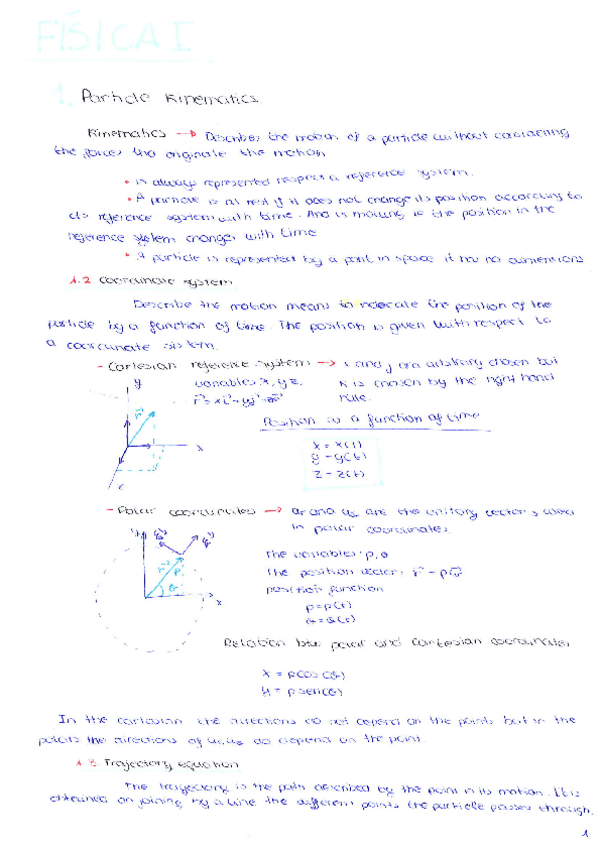 FÍSICA I
1. Particle Kinematics
Kinematics → Describes the motion of a particle without considering
the forces that originate the motion
• is always represented respect a reference system.
• A particle is at rest if it does not change its position according to
reference system with time. And is moving if the position in the
reference system changes with time
• A particle is represented by a point in space it has no dimensions
1.2 Coordinate system
Describe the motion means to indicate the position of the
particle by a function of time. The position is given with respect to
a coordinate system.
- Cartesian reference system → i and j are arbitrary chosen but
y variables x, y z. k is chosen by the right hand
rule.
Position is a function of time
x
x = x(t)
y = y(t)
z = z(t)
- Polar coordinates → and are the unitary vectors used
in polar coordinates.
The variables: ρ, θ
The position vector:
position function
ρ = ρ(t)
θ = θ(t)
x
Relation btw polar and cartesian coordinates
x = ρcos(θ)
y = ρsen(θ)
In the cartesian the directions do not depend on the points but in the
polars the directions of do depend on the point.
1.3 Trajectory equation
The trajectory is the path described by the point in its motion. It is
obtained on joining by a line the different points the particle passes through.
1